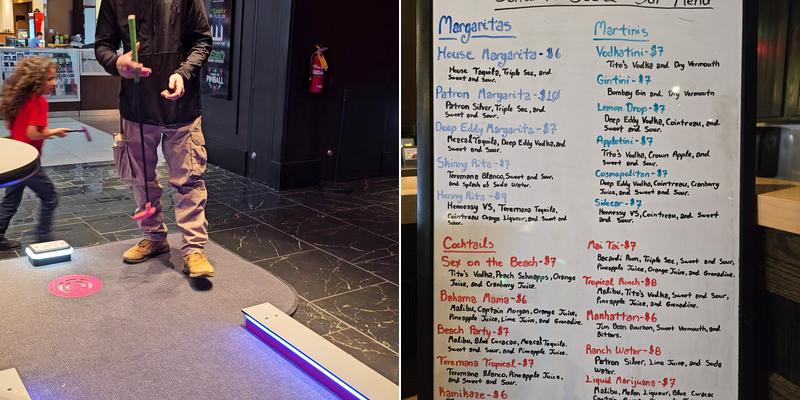 PINBALL
Bar Menu
Margaritas
House Margarita - $6
House Tequila, Triple Sec, and
Sweet and Sour.
Patron Margarita - $10
Patron Silver, Triple Sec, and
Sweet and Sour.
Deep Eddy Margarita - $7
Mezcal Tequila, Deep Eddy Vodka, and
Sweet and Sour.
Skinny Rita - $7
Teremana Blanco, Sweet and Sour,
and Splash of Soda Water.
Henny Rita - $9
Hennessy VS, Teremana Tequila,
Cointreau Orange Liqueur, and Sweet and
Sour.
Cocktails
Sex on the Beach - $7
Tito's Vodka, Peach Schnapps, Orange
Juice, and Cranberry Juice.
Bahama Mama - $6
Malibu, Captain Morgan, Orange Juice,
Pineapple Juice, Lime Juice, and Grenadine.
Beach Party - $7
Malibu, Blue Curacao, Mezcal Tequila,
Sweet and Sour, and Pineapple Juice.
Teremana Tropical - $7
Teremana Blanco, Pineapple Juice,
and Sweet and Sour.
Kamikaze - $6
Martinis
Vodkatini - $7
Tito's Vodka and Dry Vermouth
Gintini - $7
Bombay Gin and Dry Vermouth
Lemon Drop - $7
Deep Eddy Vodka, Cointreau, and
Sweet and Sour.
Appletini - $7
Tito's Vodka, Crown Apple, and
Sweet and Sour.
Cosmopolitan - $7
Deep Eddy Vodka, Cointreau, Cranberry
Juice, and Sweet and Sour.
Sidecar - $7
Hennessy VS, Cointreau, and Sweet
and Sour.
Mai Tai - $7
Bacardi Rum, Triple Sec, Sweet and Sour,
Pineapple Juice, Orange Juice, and Grenadine.
Tropical Punch - $8
Malibu, Tito's Vodka, Sweet and Sour,
Pineapple Juice, and Grenadine.
Manhattan - $6
Jim Bean Bourbon, Sweet Vermouth, and
Bitters.
Ranch Water - $8
Patron Silver, Lime Juice, and Soda
Water.
Liquid Marijuana - $7
Malibu, Melon Liqueur, Blue Curacao
Captain